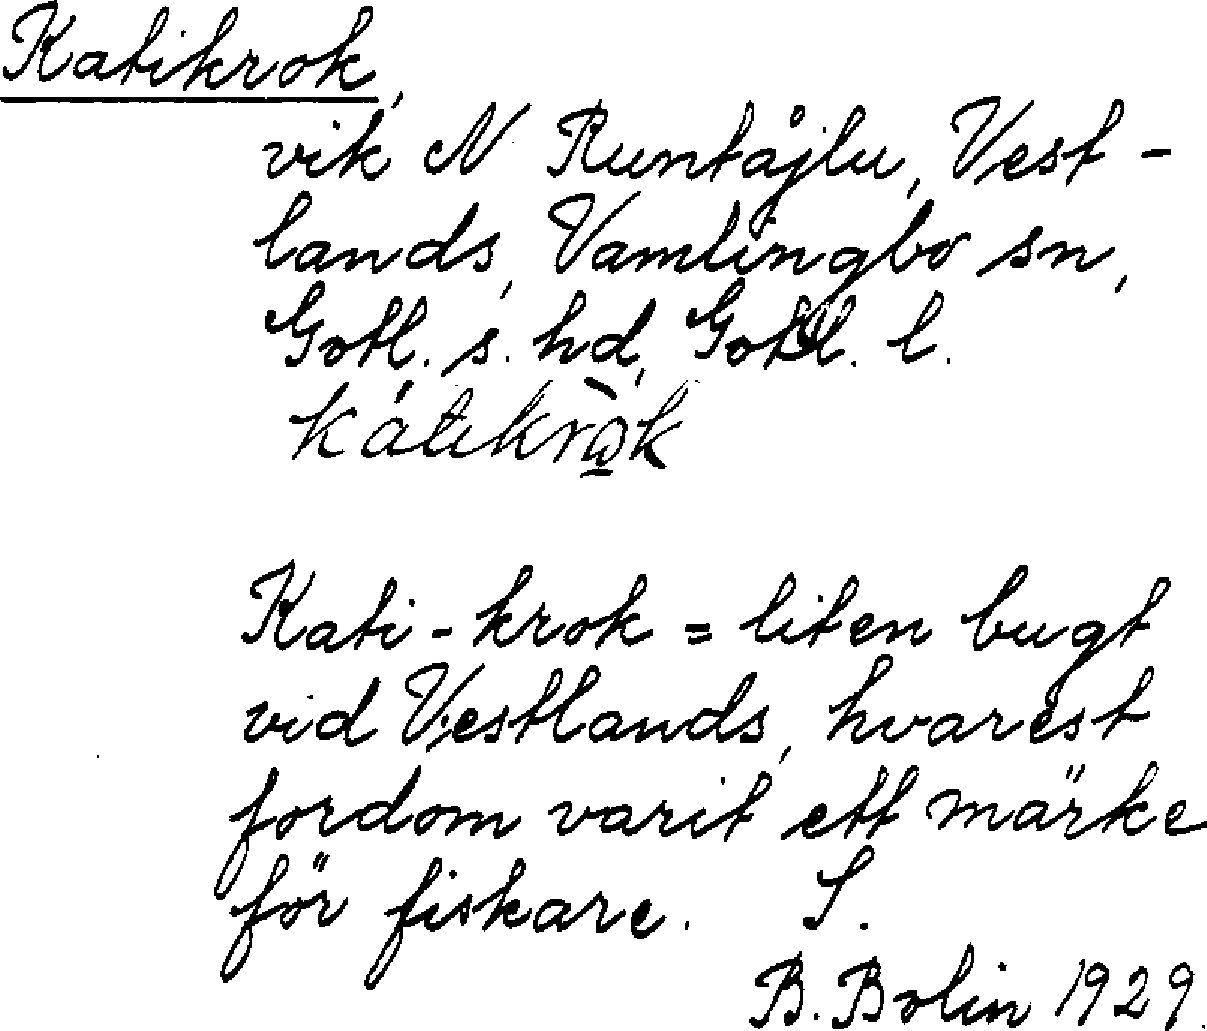 Katikrok,
vik N Runtåjlu, Vest-
lands, Vamlingbo sn,
Gotl. s. hd, Gotl. l.
kátikrò̱k
Kati-krok = liten bugt
vid Vestlands, hvarest
fordom varit ett märke
för fiskare. S.
B. Bolin 1929.